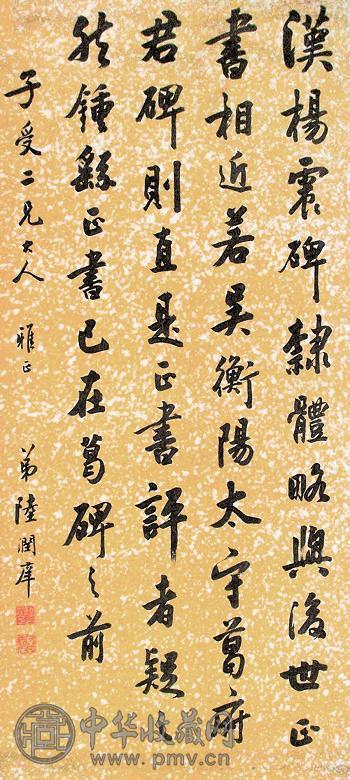 漢楊震碑隸體略與後世正
書相近若吳衡陽太守葛府
君碑則直是正書評者疑之
然鍾繇正書已在葛碑之前
子受二兄大人 雅正 弟陸潤庠
中华收藏网
www.pmv.cn